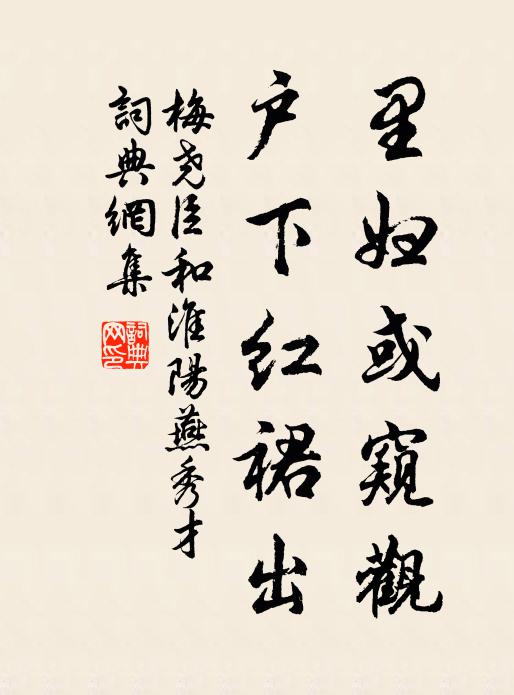 里妇或窥觀
户下红裙出
梅尧臣和淮陽燕秀才
詞典網集
詞典網印